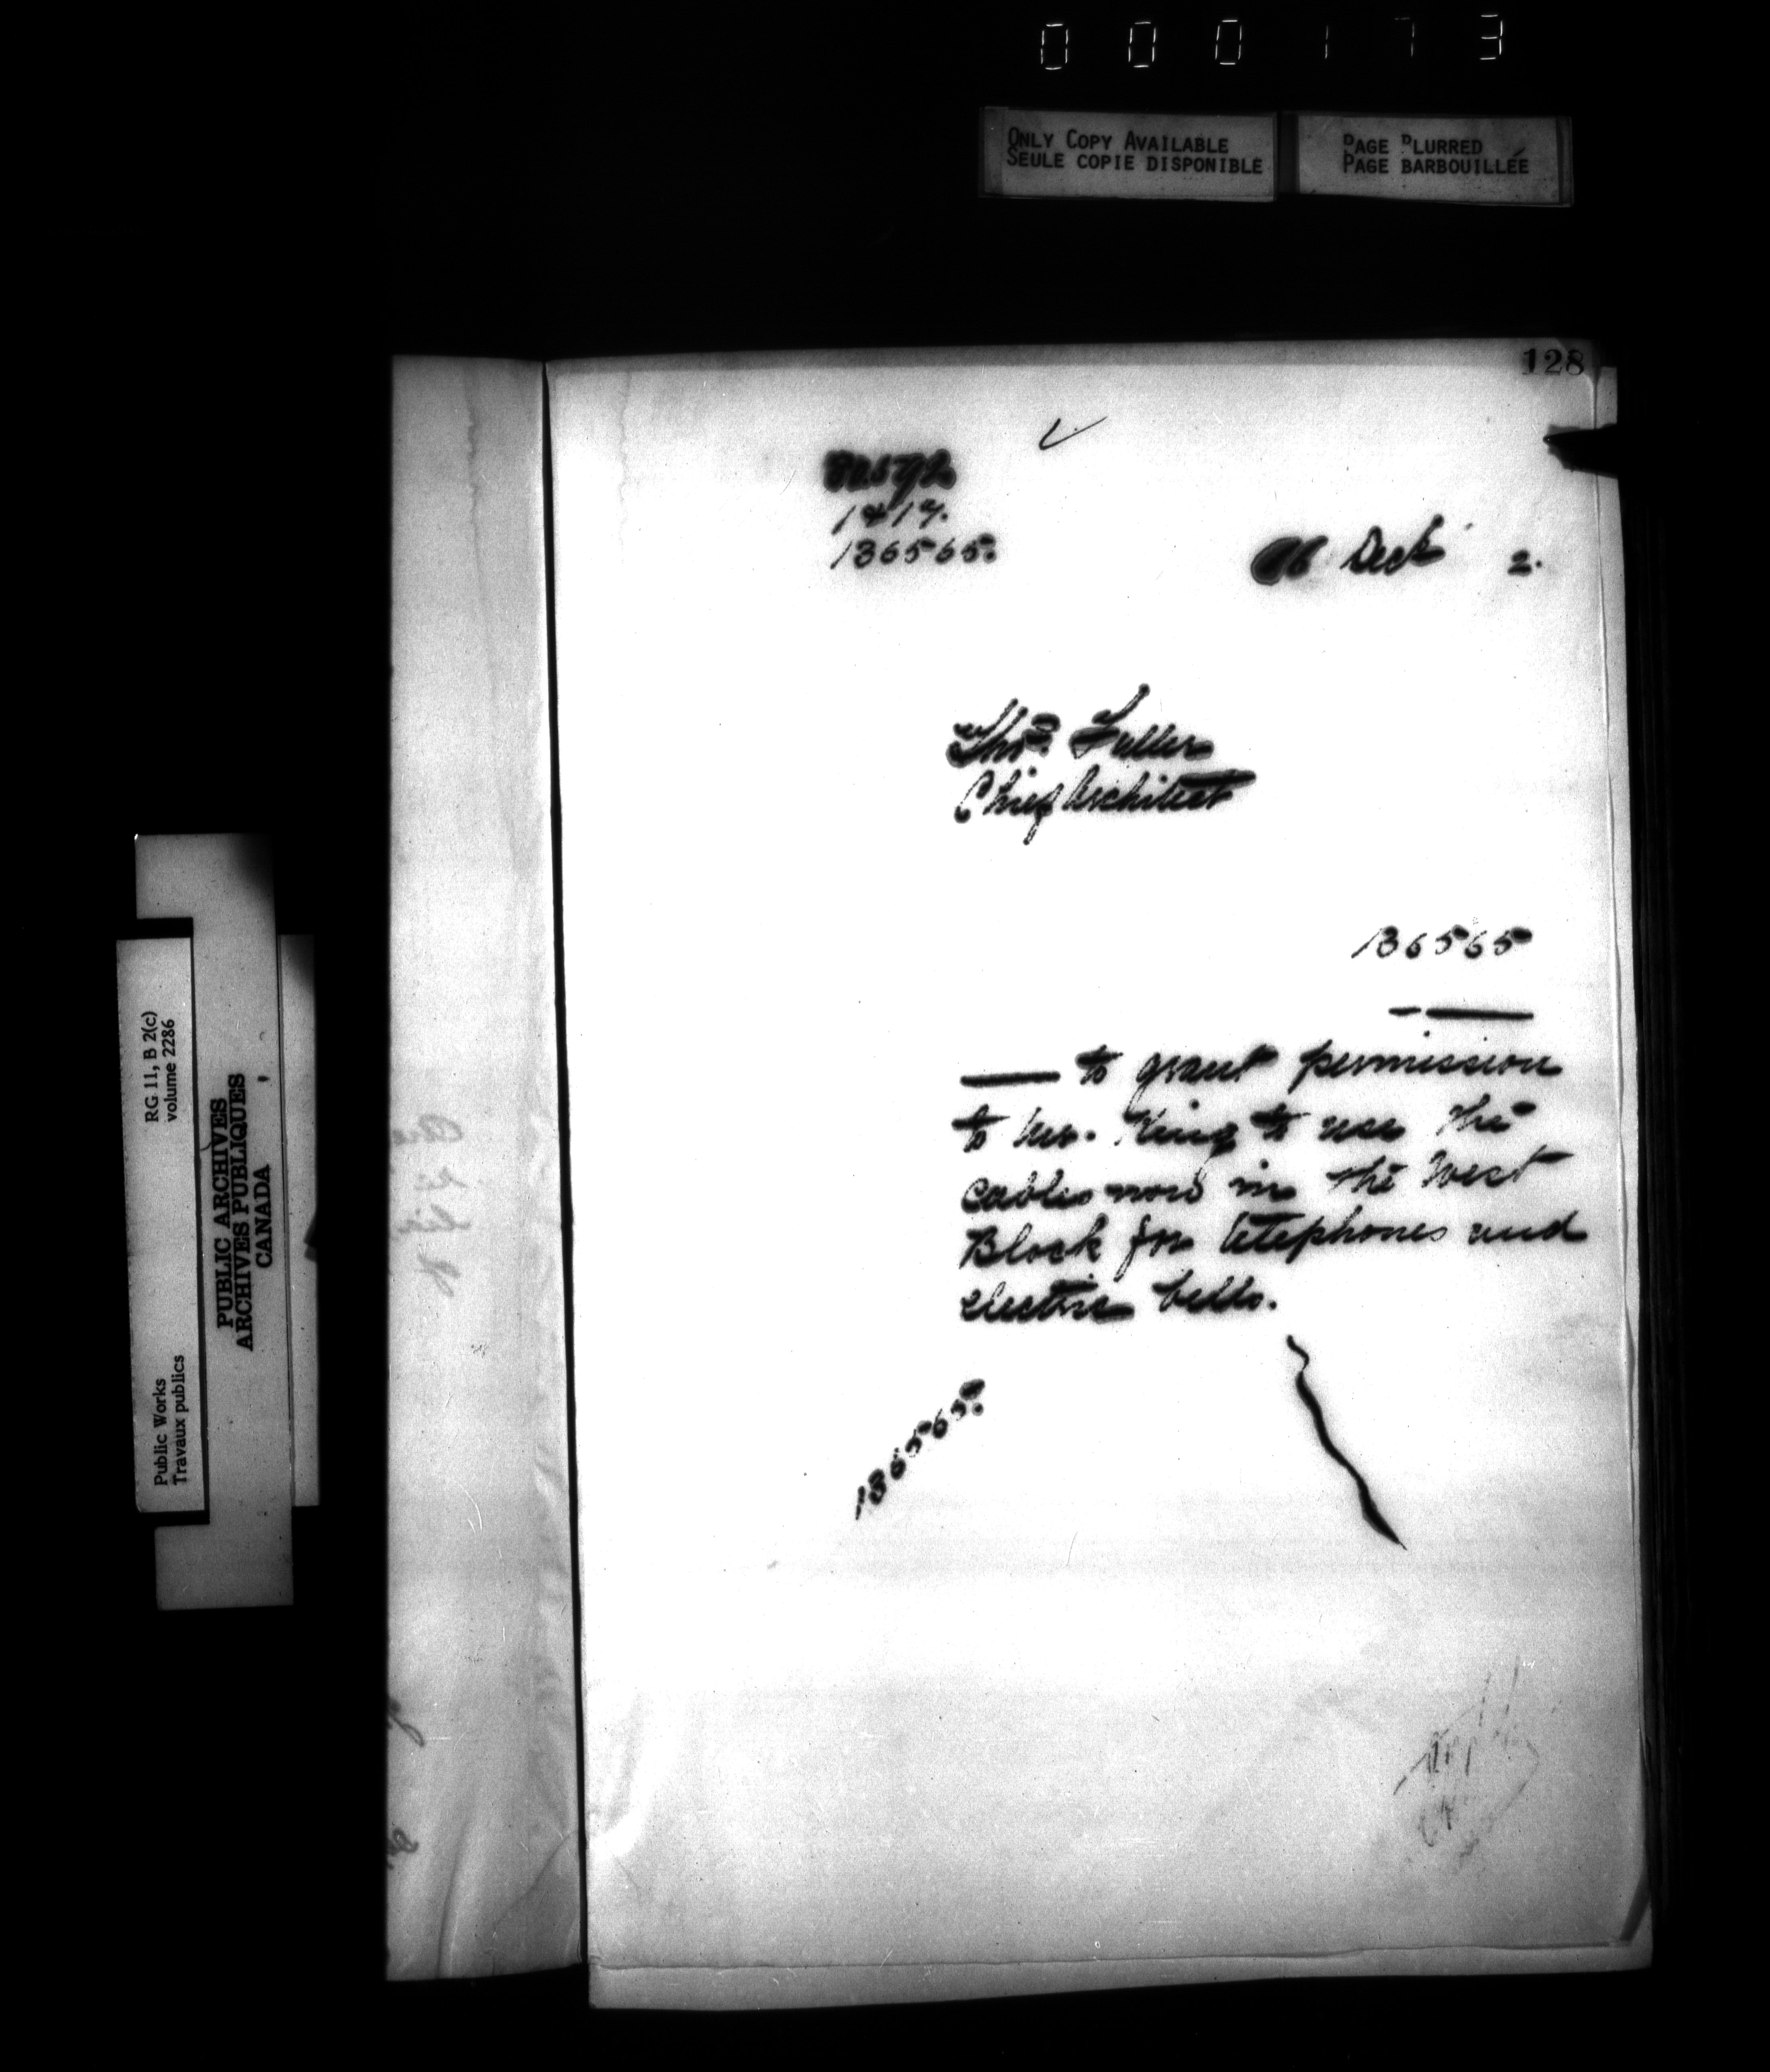 000173
ONLY COPY AVAILABLE
SEULE COPIE DISPONIBLE
PAGE BLURRED
PAGE BARBOUILLÉE
128
1417.
136565.
Dec 2.
Thos. Fuller
Chief Architect
136565
to grant permission
to Mr. King to use the
cables now in the West
Block for telephones and
electric bells.
136565.
RG 11, B 2(c)
volume 2286
Public Works
Travaux publics
PUBLIC ARCHIVES
ARCHIVES PUBLIQUES
CANADA